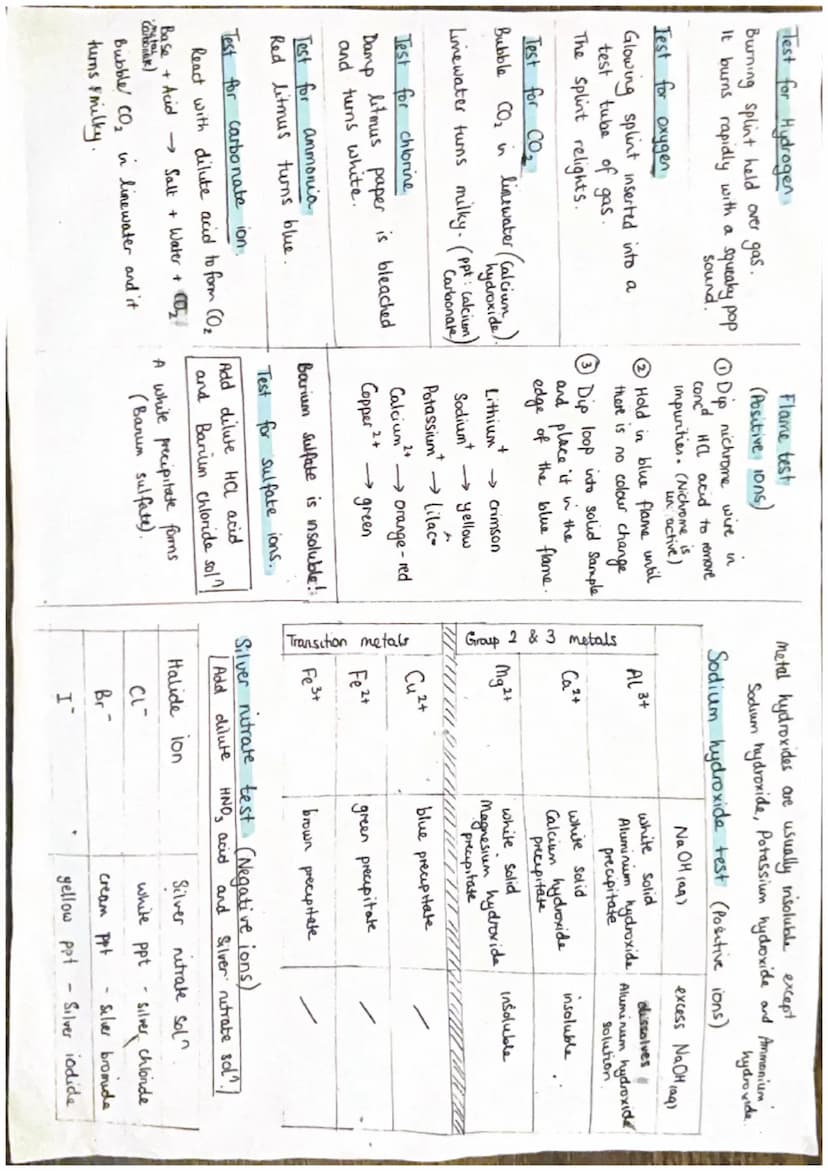 Test for Hydrogen
Burning splint held over gas.
It burns rapidly with a squeaky pop
sound.
Test for oxygen
Glowing splint inserted into a
test tube of gas.
The splint relights.
Test for CO₂
Bubble CO₂ in limewater (calcium
hydroxide).
Limewater turns milky. (ppt: calcium
carbonate)
Test for chlorine
Damp litmus paper is bleached
and turns white.
Test for ammonia
Red litmus turns blue.
Test for carbonate ion.
React with dilute acid to form CO₂
Base + Acid → Salt + Water + CO₂
carbonate)
Bubble CO₂ in limewater and it
turns milky.
Flame test
(Positive ions)
① Dip nichrome wire in
concᵈ HCl acid to remove
impurities. (Nichrome is
unactive)
② Hold in blue flame until
there is no colour change
③ Dip loop into solid sample
and place it in the
edge of the blue flame.
Lithium⁺ → crimson
Sodium⁺ → yellow
Potassium⁺ → lilac
Calcium²⁺ → orange-red
Copper²⁺ → green
Barium sulfate is insoluble!
Test for sulfate ions.
Add dilute HCl acid
and Barium chloride solⁿ
A white precipitate forms
(Barium sulfate).
Metal hydroxides are usually insoluble except
Sodium hydroxide, Potassium hydroxide and Ammonium
hydroxide.
Sodium hydroxide test (Positive ions)
NaOH(aq) excess NaOH(aq)
Group 2 & 3 metals
Al³⁺ white solid Aluminium hydroxide precipitate dissolves Aluminium hydroxide solution
Ca²⁺ white solid Calcium hydroxide precipitate insoluble
Mg²⁺ white solid Magnesium hydroxide precipitate insoluble
Transition metals
Cu²⁺ blue precipitate /
Fe²⁺ green precipitate /
Fe³⁺ brown precipitate /
Silver nitrate test (Negative ions)
Add dilute HNO₃ acid and Silver nitrate solⁿ.
Halide ion Silver nitrate solⁿ
Cl⁻ white ppt - silver chloride
Br⁻ cream ppt - silver bromide
I⁻ yellow ppt - Silver iodide